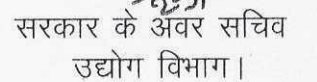 सरकार के अवर सचिव
उद्योग विभाग।